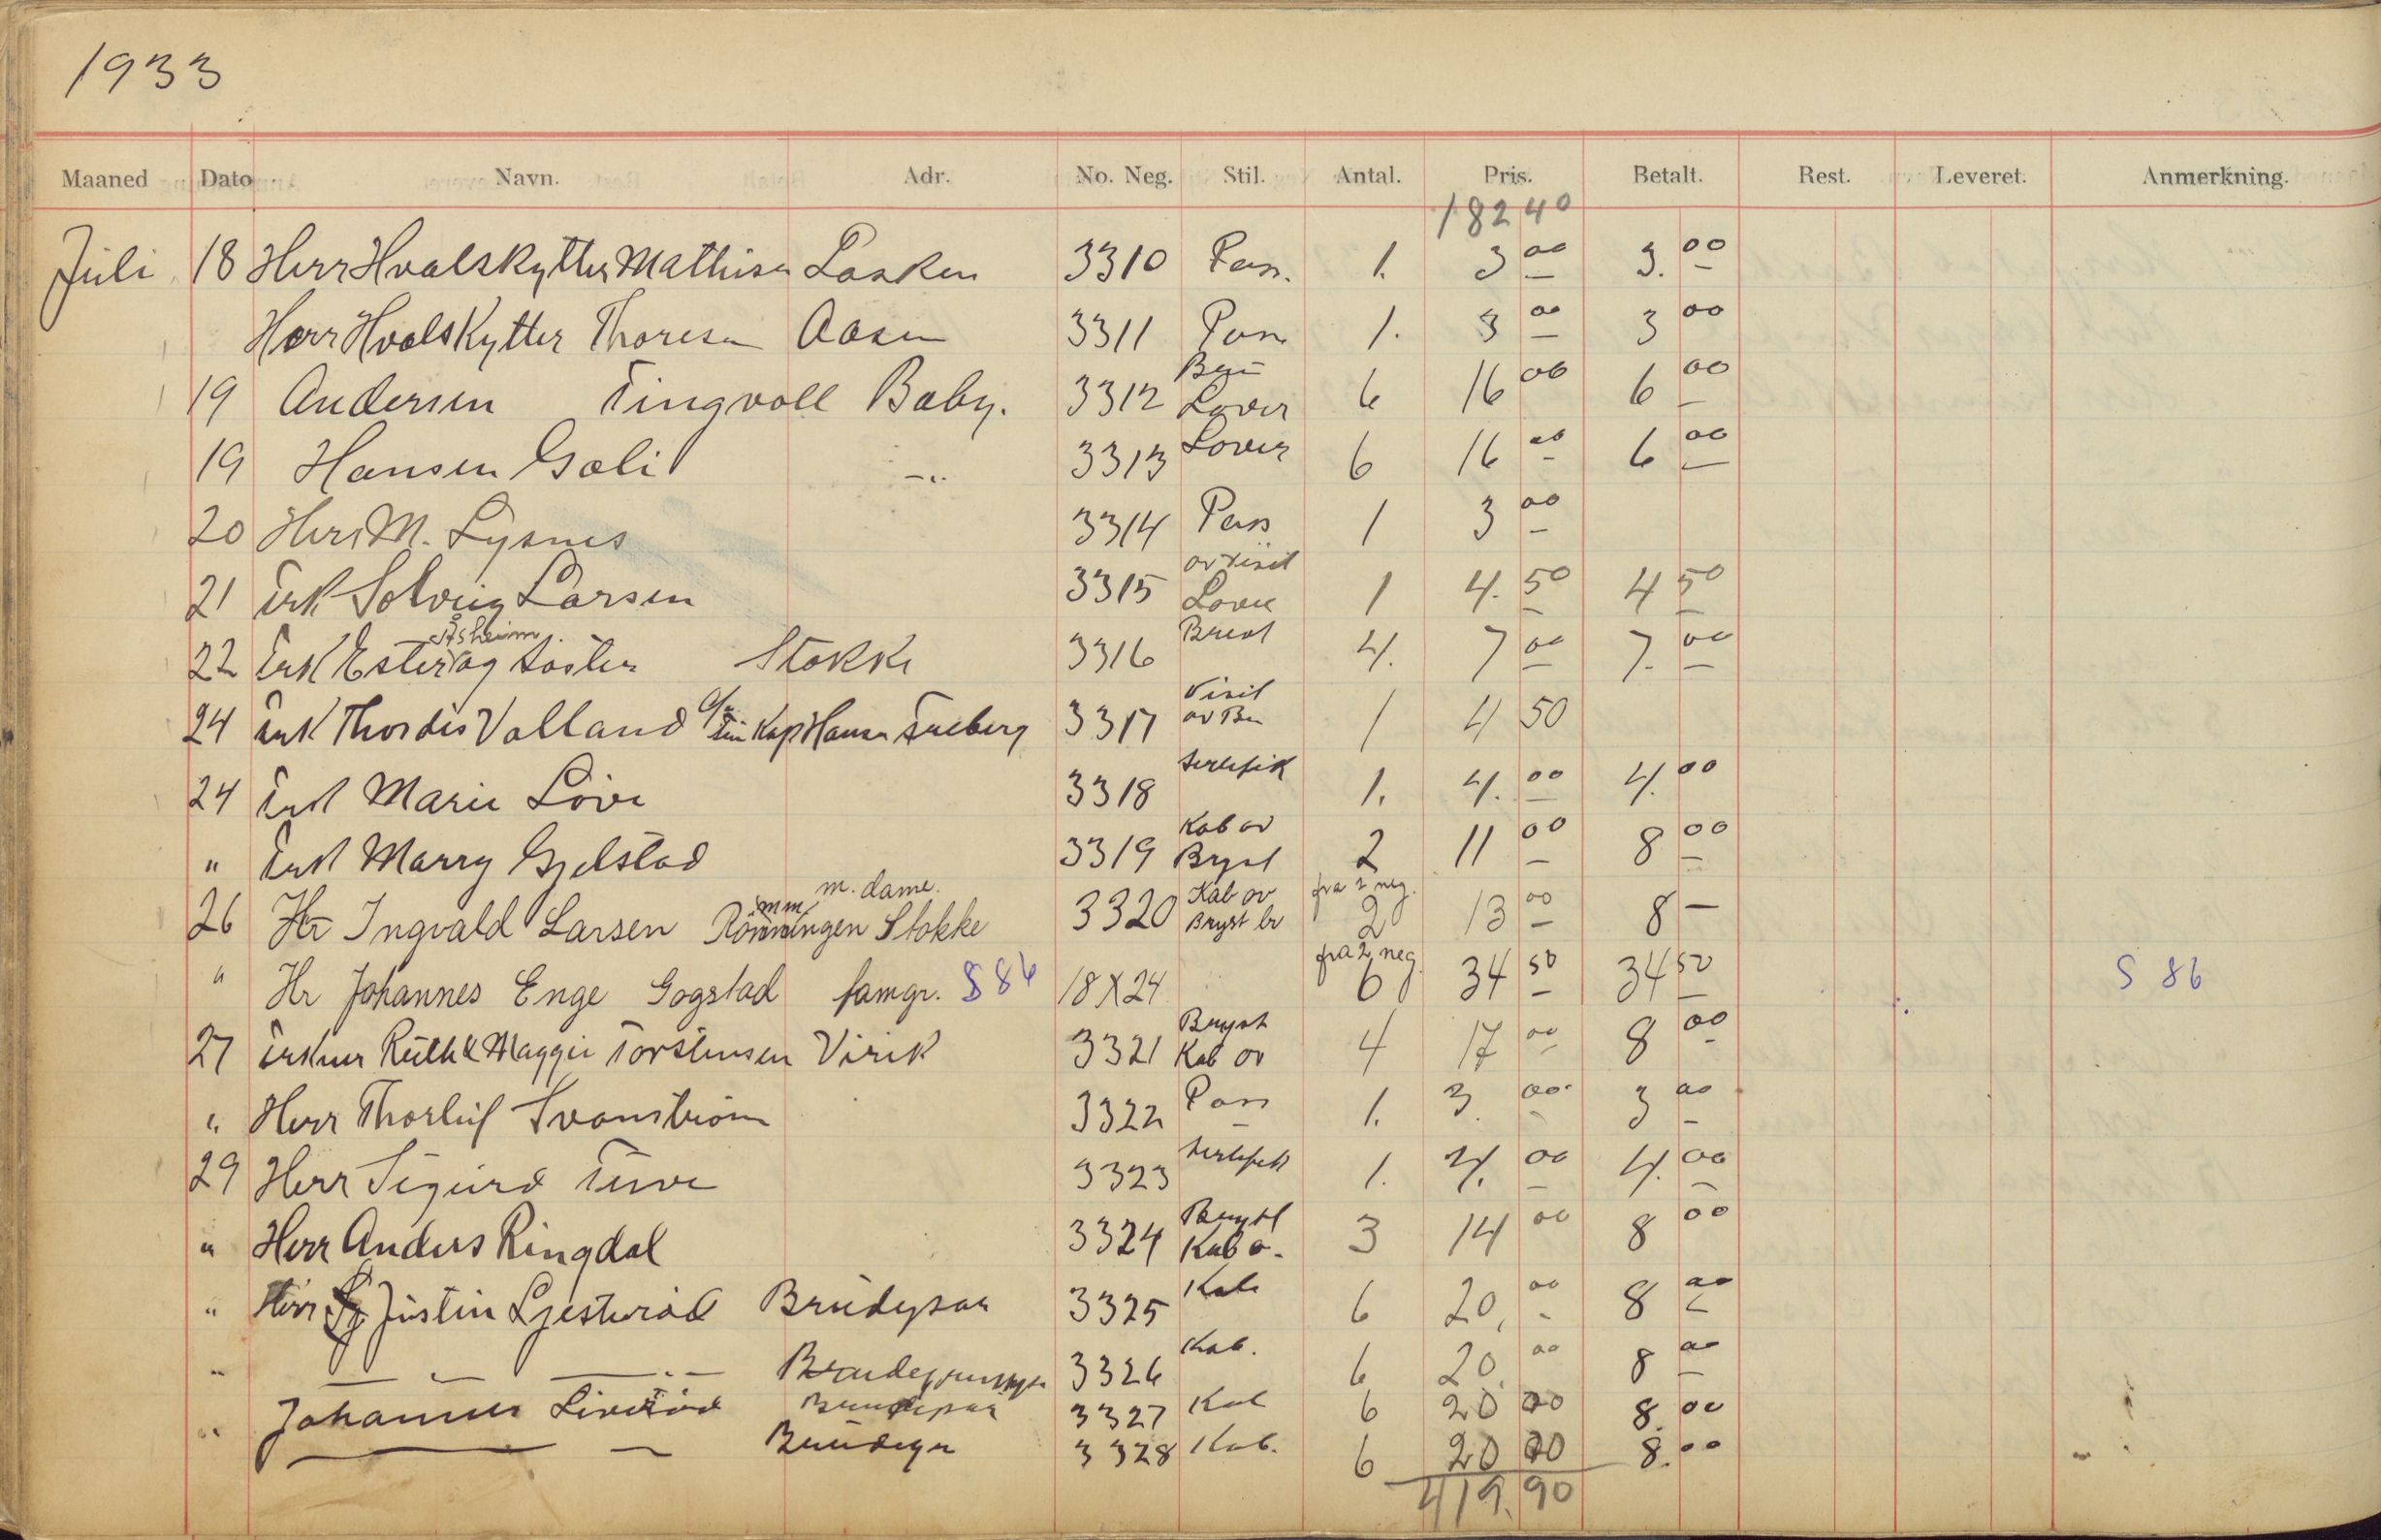 1933
Maaned Dato Navn. Adr. No. Neg. Stil. Antal. Pris. Betalt. Rest. Leveret. Anmerkning.
182 40
Juli 18 Herr Hvalskytter Mathisen Lasken 3310 Pass. 1. 3 00 3. 00
Herr Hvalskytter Thoresen Aasen 3311 Pass 1. 3 00 3 00
19 Andersen Tingvoll Baby. 3312 Lover 6 16 00 6 00
19 Hansen Gali -"- 3313 Lover 6 16 00 6 00
20 Herr M. Lysnes 3314 Pass 1 3 00
21 Frk Solveig Larsen 3315 ov visit 1 4. 50 4 50
Åsheim.
22 Frk Ester og søster Stokke 3316 4. 7 00 7. 00
24 Frk Thordis Valland Kap Hansen Freberg 3317 Visit 1 4 50
24 Frk Marie Löve 3318 sertifik 1. 4. 00 4. 00
" Frk Marry Gjelstad 3319 Kab ov Bryst 2 11 00 8 00
m. dame.
26 Hr Ingvald Larsen Rönningen Stokke 3320 Kab ov Bryst br fra 2 neg. 2 13 00 8 —
" Hr Johannes Enge Gogstad famgr. S 86 18 X 24 fra 2 neg. 6 34 50 34 50 S 86
27 Frknr Ruth & Maggie Torstensen Virik 3321 Bryst Kab ov 4 17 00 8 00
" Herr Thorleif Svanström 3322 Pass 1. 3. 00 3 00
29 Herr Sigurd 3323 sertifik 1. 4. 00 4. 00
" Herr Anders Ringdal 3324 Bryst Kab o. 3 14 00 8 00
" Herr Justin Ljesteröd Brudepar 3325 Kab 6 20, 00 8 00
" — " — 3326 Kab. 6 20. 00 8 00
" Johannes Liveröd Brudepar 3327 Kab 6 20 00 8. 00
3328 Kab. 6 20 00 8. 00
419. 90